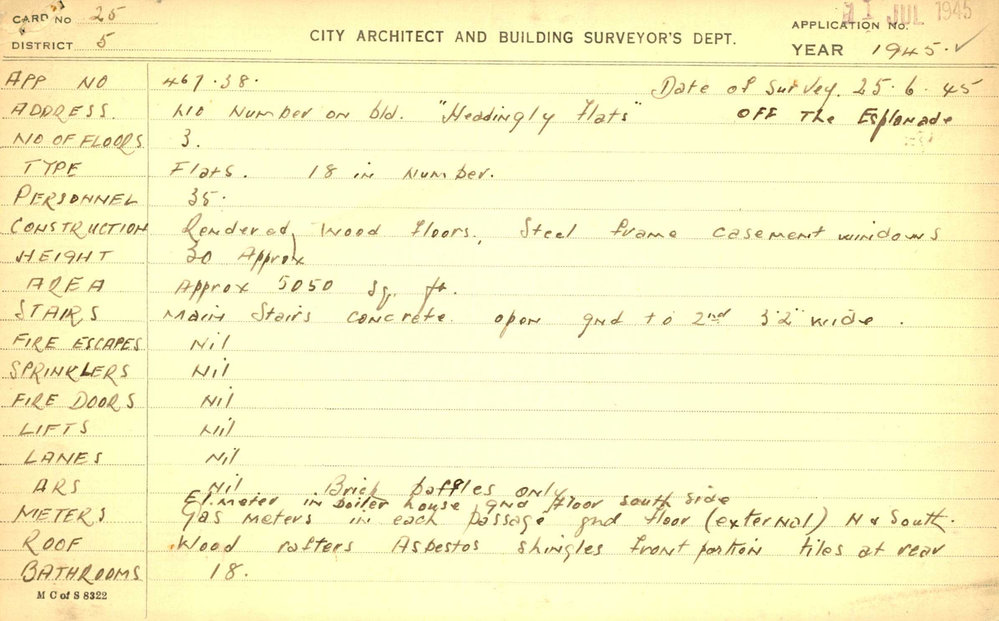 CARD No 25
11 JUL 1945
APPLICATION No.
DISTRICT 5
CITY ARCHITECT AND BUILDING SURVEYOR'S DEPT.
YEAR 1945. ✓
APP NO 467.38. Date of Survey. 25.6.45
ADDRESS. No Number on bld. "Headingly Flats" OFF The Esplanade
NO OF FLOORS 3.
TYPE Flats. 18 in Number.
PERSONNEL 35.
CONSTRUCTION Rendered, Wood floors, Steel frame casement windows
HEIGHT 30 Approx
AREA Approx 5050 Sq. ft.
STAIRS Main Stairs concrete open gnd to 2nd 3'2" wide.
FIRE ESCAPES Nil
SPRINKLERS Nil
FIRE DOORS Nil
LIFTS Nil
LANES Nil
ARS Nil Brick baffles only
El. meter in boiler house gnd floor south side
METERS Gas meters in each passage gnd floor (external) N & South.
ROOF Wood rafters Asbestos shingles front portion tiles at rear
BATHROOMS 18.
M C of S 8322